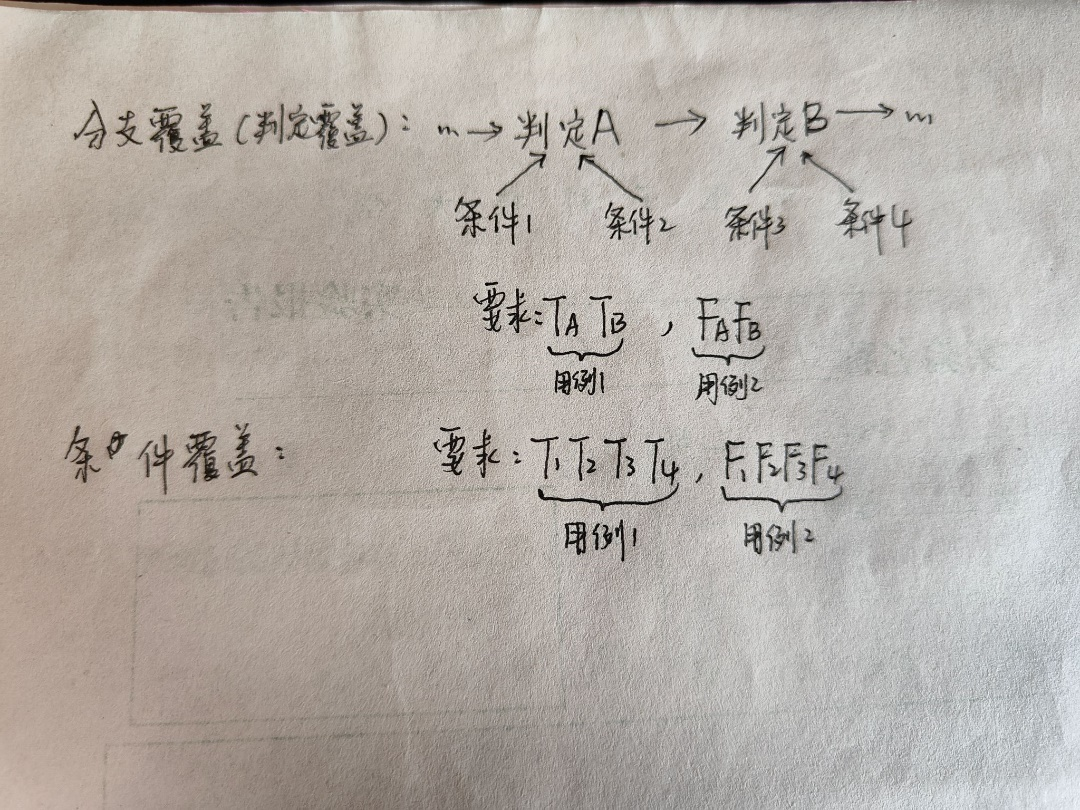 分支覆盖(判定覆盖): m→判定A → 判定B→m
条件1 条件2 条件3 条件4
要求:TA TB , FAFB
用例1 用例2
条件覆盖: 要求:T1 T2 T3 T4 , F1F2F3F4
用例1 用例2